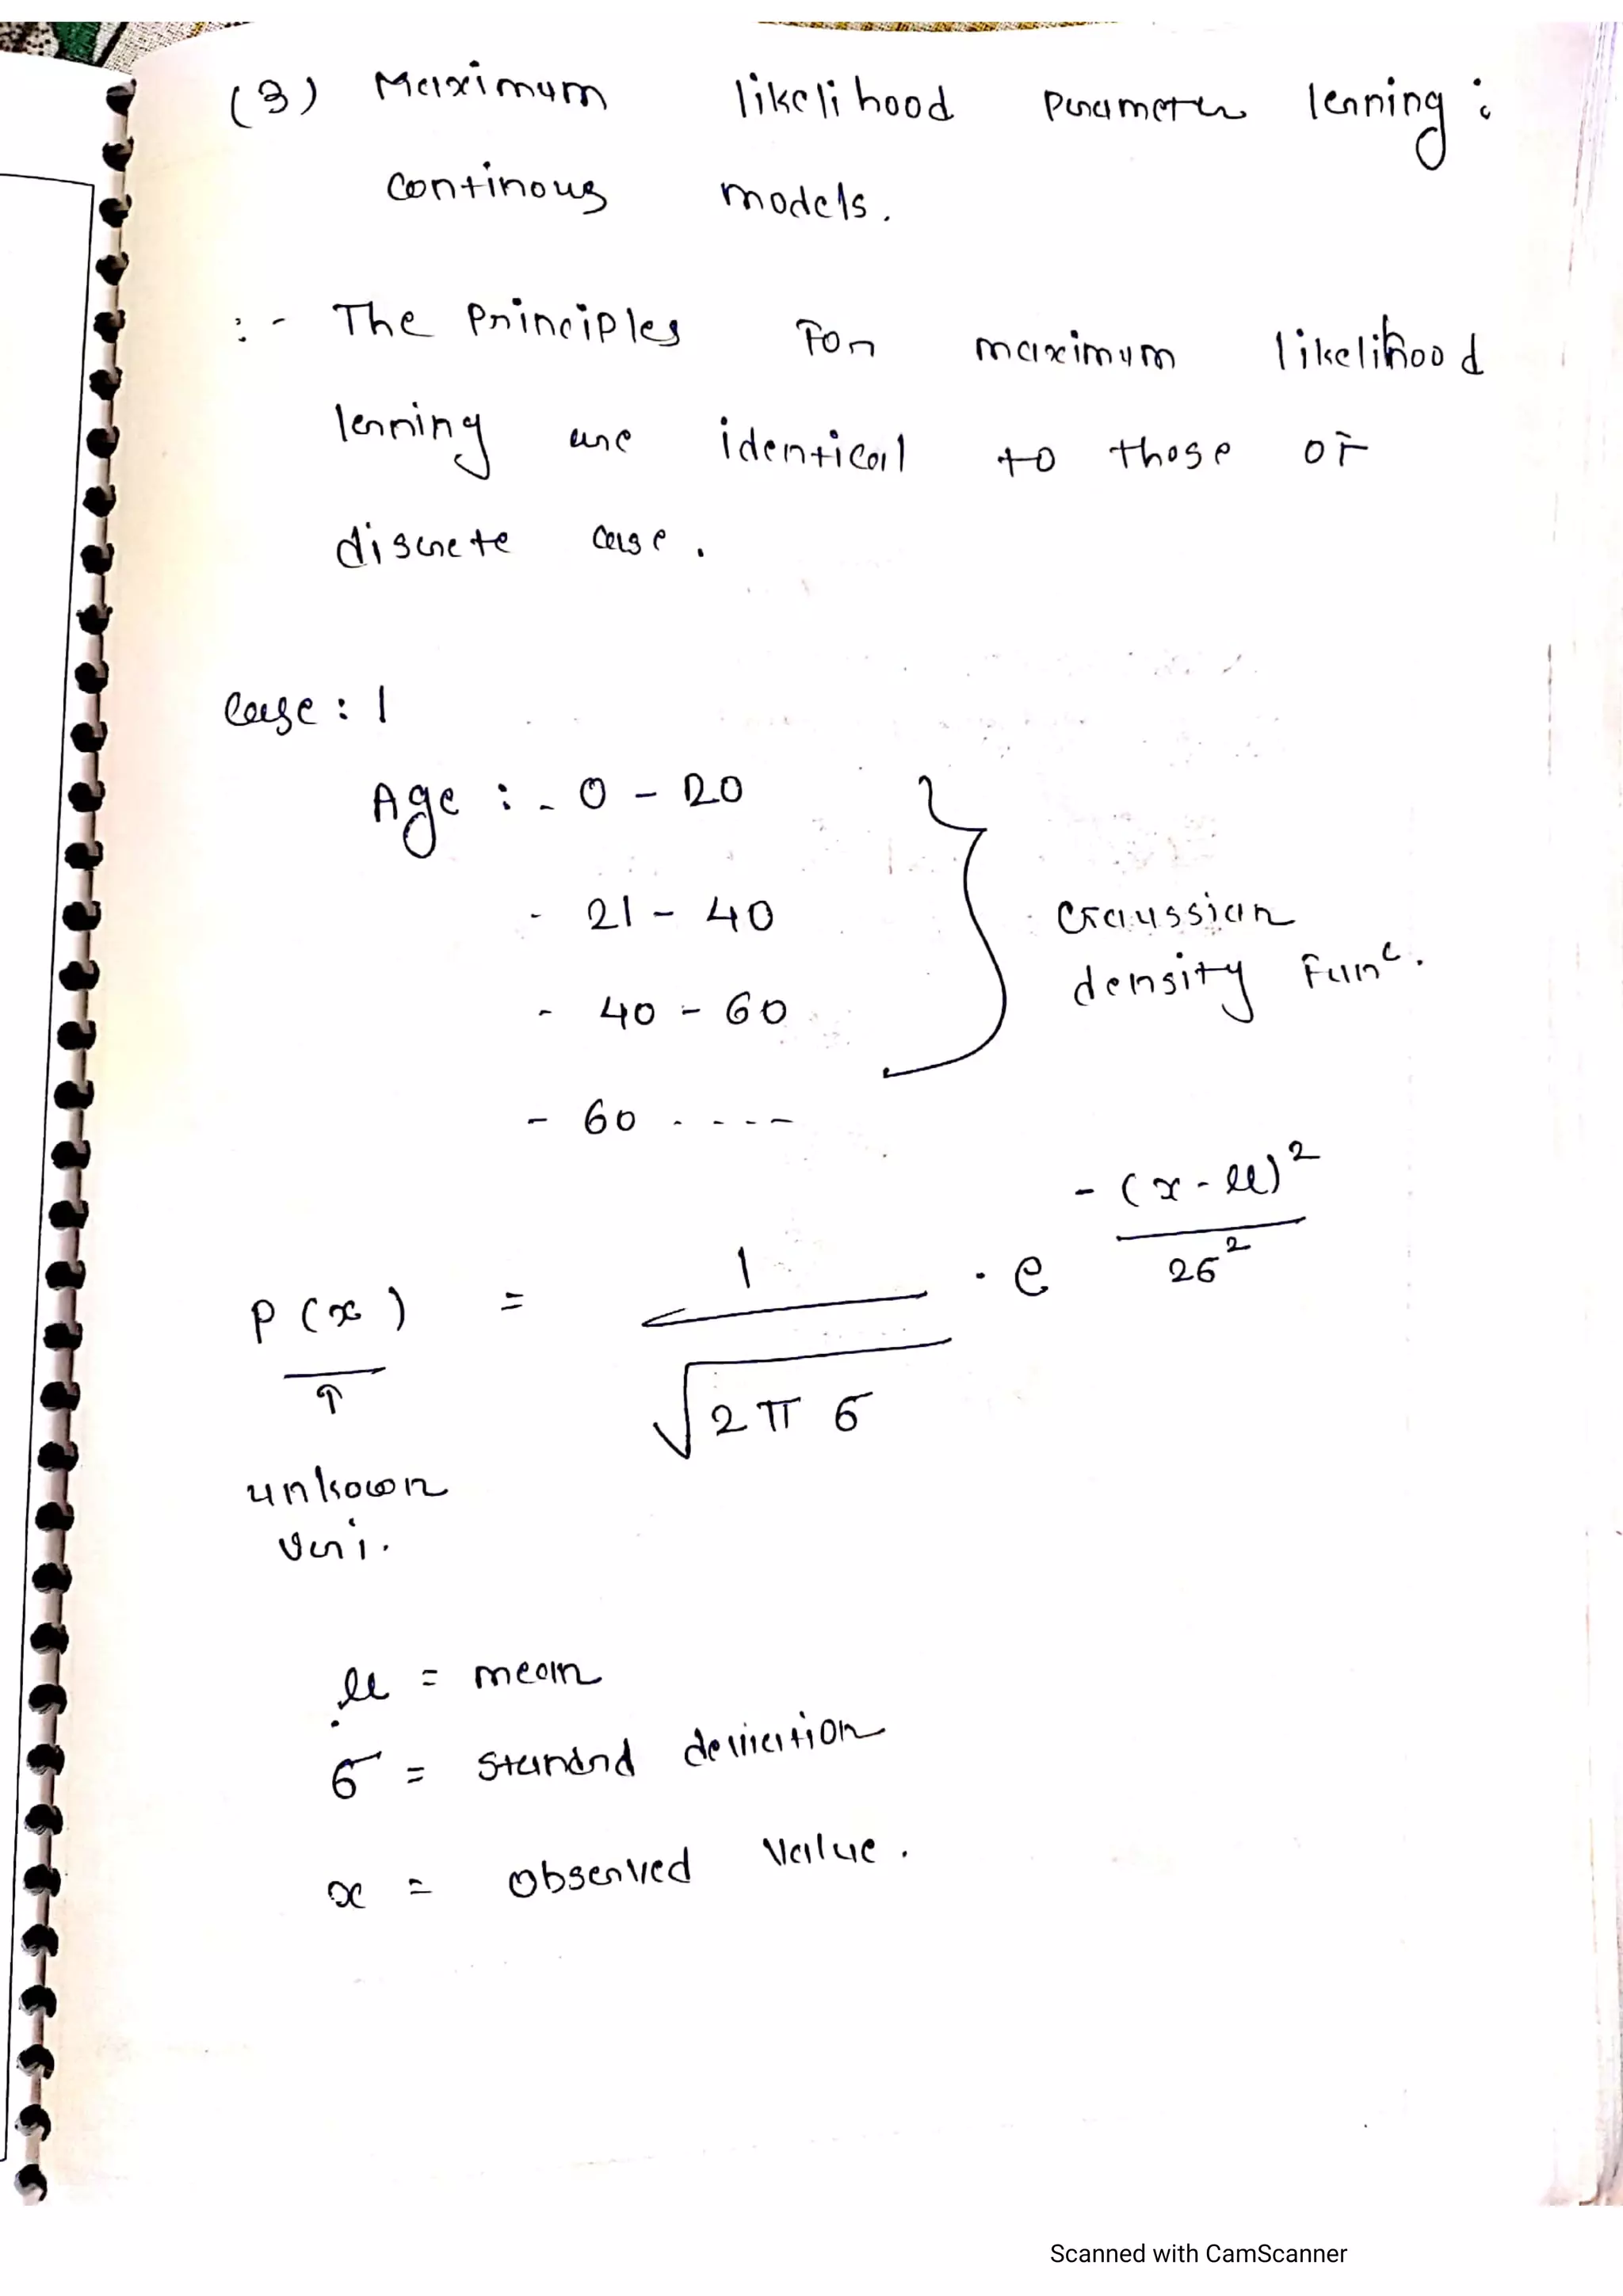 (3) Maximum likelihood Parameter lerning :
continous models.
:- The Principles For maximum likelihood
lerning are identical to those of
discrete case.
Case : 1
Age : - 0 - 20
- 21 - 40
- 40 - 60
- 60 - - - -
Gaussian
density Func.
P(x) = 1 / √2π σ · e - (x - μ)² / 2σ²
unkown
vari.
μ = mean
σ = Standrd deviation
x = Observed Value.
Scanned with CamScanner